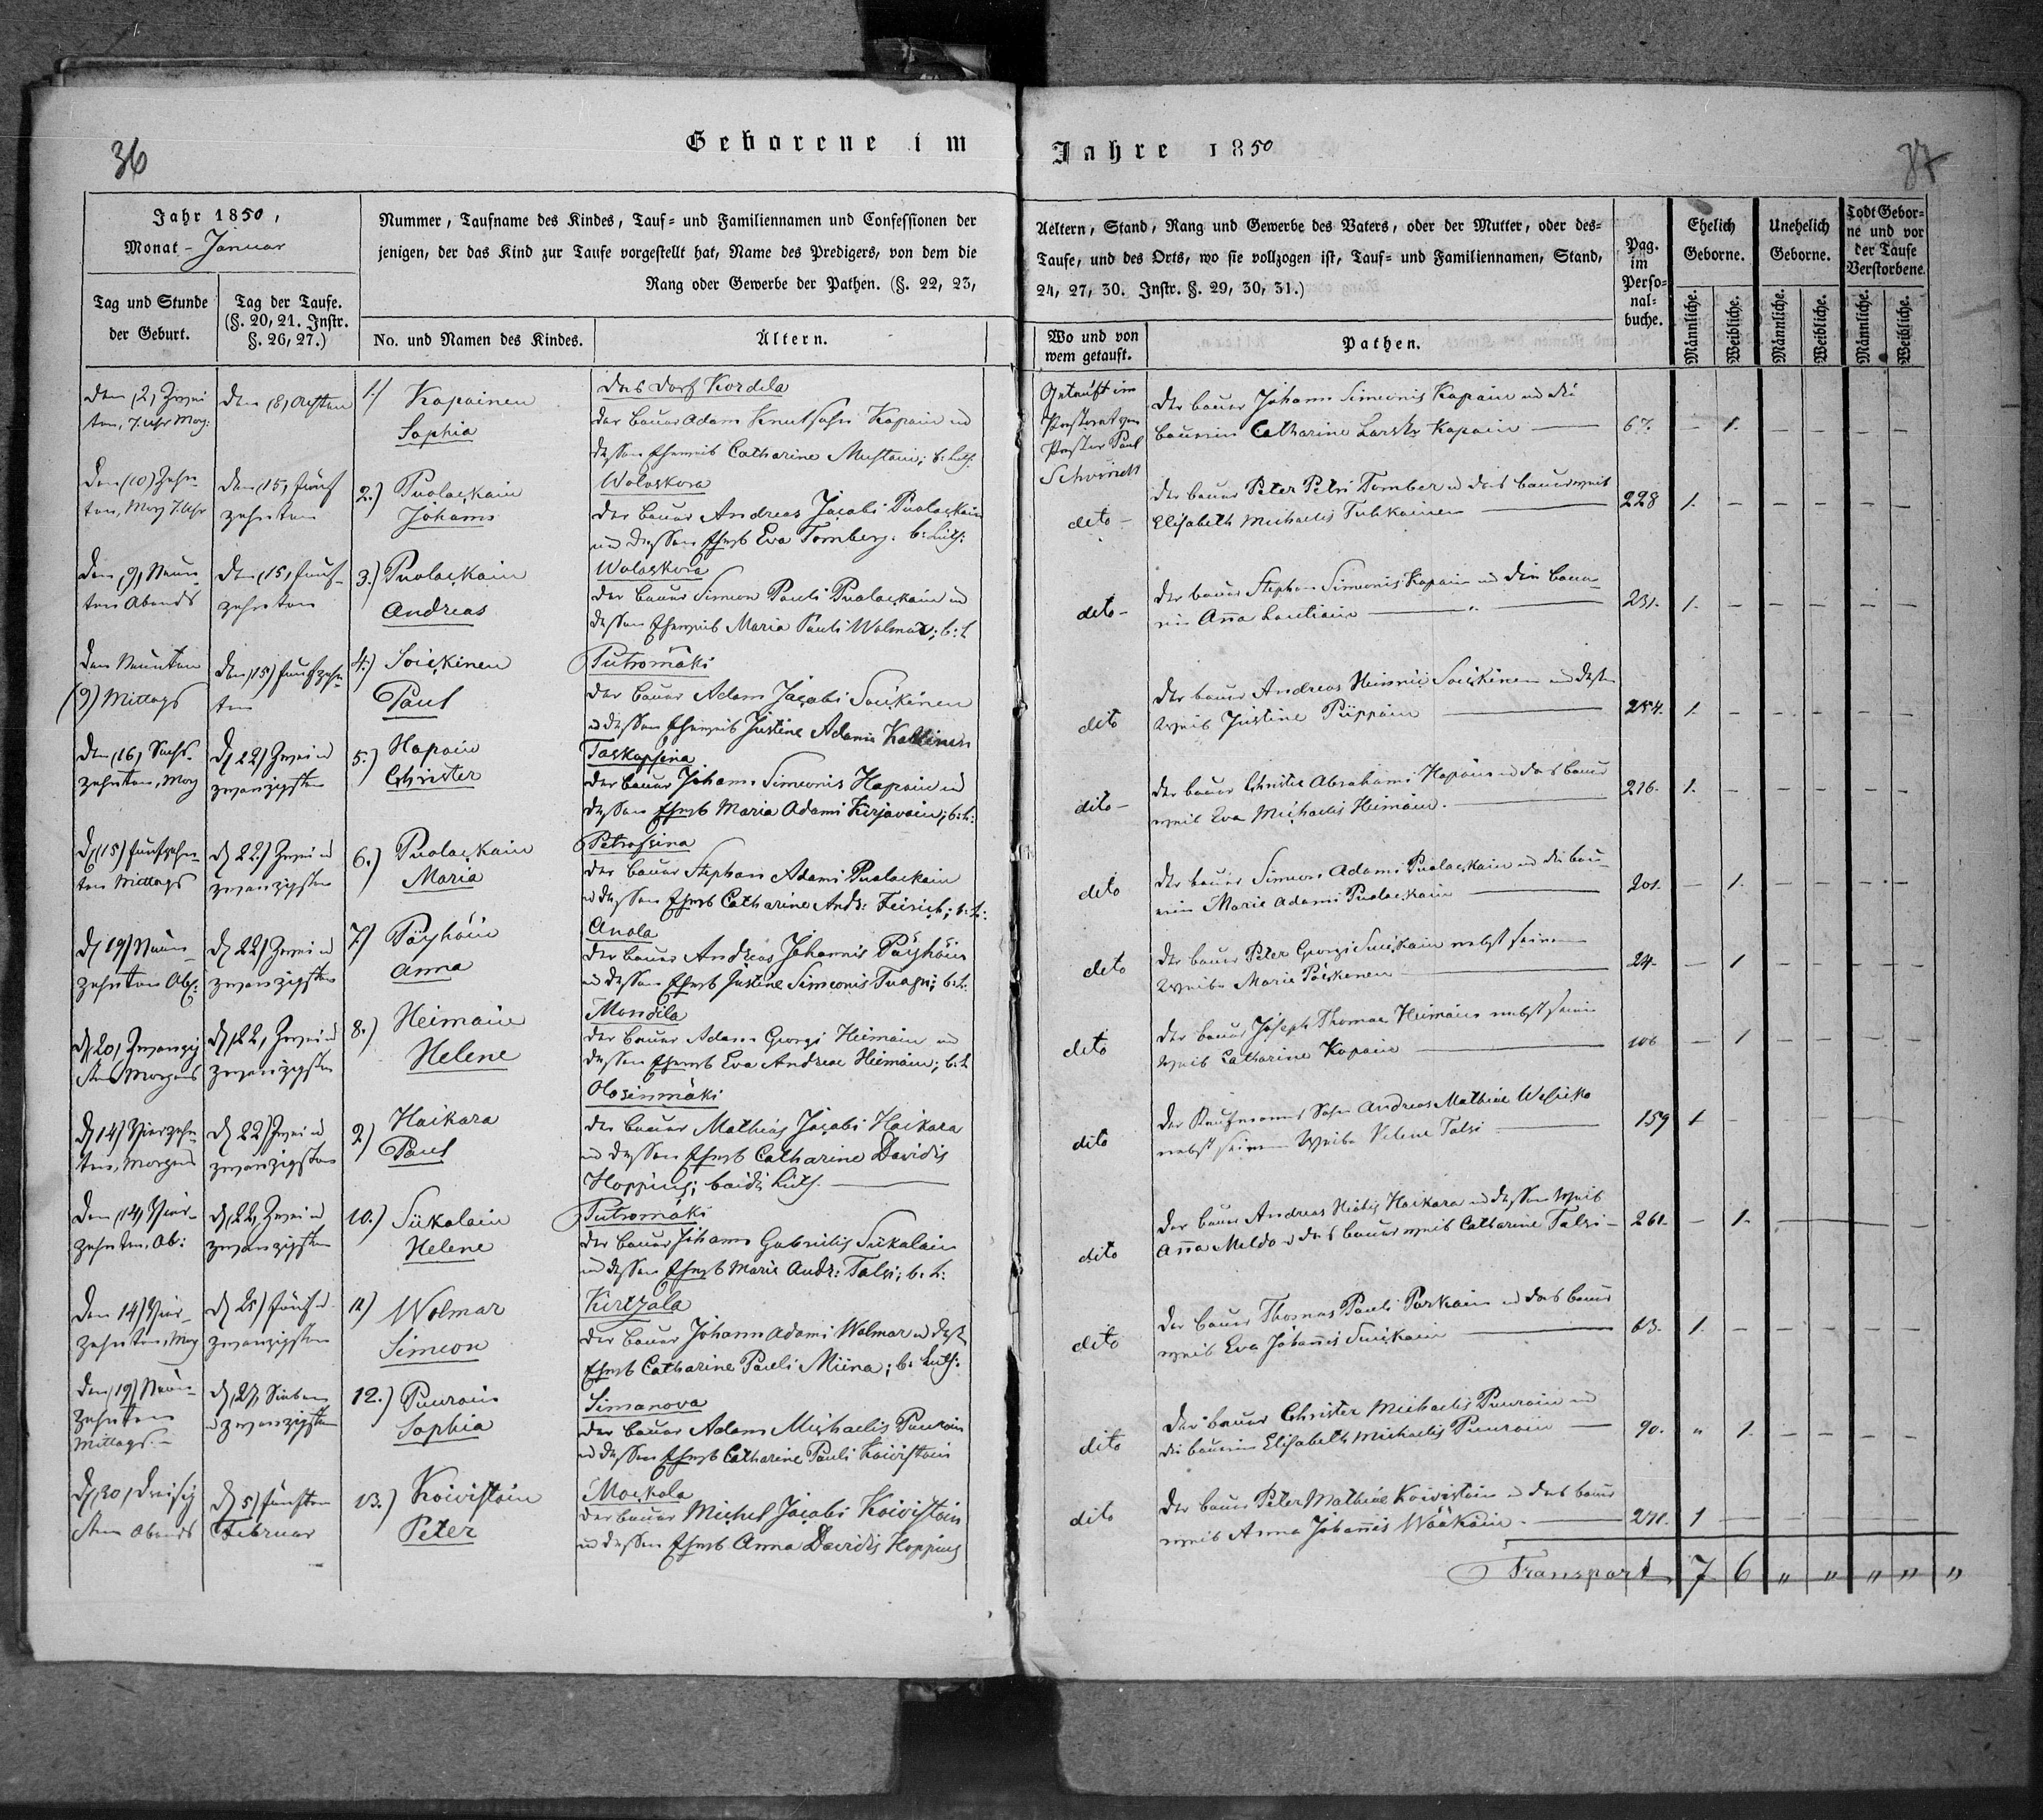 36
Geborene im
Jahre 1850
37
Jahr 1850,
Monat - Januar
Nummer, Taufname des Kindes, Tauf- und Familiennamen und Confessionen der
jenigen, der das Kind zur Taufe vorgestellt hat, Name des Predigers, von dem die
Rang oder Gewerbe der Pathen. (§. 22, 23,
Tag und Stunde
der Geburt.
Tag der Taufe.
(§. 20, 21. Instr.
§. 26, 27.)
No. und Namen des Kindes.
Ältern.
Aeltern, Stand, Rang und Gewerbe des Vaters, oder der Mutter, oder des-
Taufe, und des Orts, wo sie vollzogen ist, Tauf- und Familiennamen, Stand,
24, 27, 30. Instr. §. 29, 30, 31.)
Wo und von
wem getauft.
Pathen.
Pag.
im
Perso-
nal-
buche.
Ehelich
Geborne.
Unehelich
Geborne.
Todt Gebor-
ne und vor
der Taufe
Verstorbene.
Männliche.
Weibliche.
Männliche.
Weibliche.
Männliche.
Weibliche.
Den (2) Zwei
ten, 7. Uhr Morg:
Den (8) Achten
1.) Kapainen
Sophia
Das Dorf Kordela
Der Bauer Adam Knutsohn Kapain u
dessen Eheweib Catharine Mustain; b: Luth:
Getauft im
Pastorat von
Pastor Paul
Schwindt
Der Bauer Johann Simeonis Kapain und die
Bäuerin Catharine Kapain
67.
– 1. – – – –
Den (10) Zehn-
ten, Morg 7. Uhr
Den (15) Fünf
zehnten
2.) Puolackain
Johann
Wolaskova
Der Bauer Andreas Jacobi Puolackain
und dessen Ehewb Eva Tomberg. b: Luth:
deto –
Der Bauer Peter Petri Tomber u das Bauerweib
Elisabeth Michaelis Tuhkainen
228
1. – – – – –
Den (9) Neun-
ten Abends
Den (15) Fünf-
zehnten
3.) Puolackain
Andreas
Wolaskova
Der Bauer Simeon Pauli Puolackain u
dessen Eheweib Maria Pauli Wolmar; b: L
deto –
Der Bauer Stephan Simeonis Kapain u die Baue-
rin Anna
231.
1. – – – – –
Den Neunten
(9) Mittags
Den (15) Fünfzehn-
ten
4.) Soickinen
Paul
Putromäki
Der Bauer Adam Jacobi Soickinen
u dessen Eheweib Justine Adamis Kallinen
deto
Der Bauer Andreas Heinrici Soickinen und dessen
Weib Justine Piippain
254.
1. – – – – –
Den (16) Sechs-
zehnten, Morg
D (22) Zwei u
zwanzigsten
5.) Hapain
Christer
Taskapsina
Der Bauer Johann Simeonis Hapain u
dessen Ehewb Maria Adami Kirjavain; b: L:
dito –
Der Bauer Christer Abrahami Hapain u das Bauer
weib Eva Michaelis Heimäin.
216.
1. – – – – –
D (15) Fünfzehn-
ten Mittags
D 22) Zwei u
zwanzigsten
6.) Puolackain
Maria
Petrassina
Der Bauer Stephan Adami Puolackain
u dessen Ehewb Catharine Andr: Teirich; b: L:
deto
Der Bauer Simeon Adami Puolackain und die Bäu-
erin Marie Adami Puolackain
201.
– 1. – – – –
D 19) Neun-
zehnten Ab:
D 22) Zwei u
zwanzigsten
7.) Päyhöin
Anna
Anola
Der Bauer Andreas Johannis Päyhöin
u dessen Ehewb Justine Simeonis Tuagi; b: L.
deto
Der Bauer Peter Georgi Suickain nebst seinem
Weibe Marie Päskenen
24.
– 1 – – – –
D (20) Zwanzig
sten Morgens
D (22) Zwei u
zwanzigsten
8.) Heimäin
Helene
Mondila
Der Bauer Adam Georgi Heimäin u
dessen Eheweib Eva Andreae Heimäin; b: L
deto
Der Bauer Joseph Thomae Heimäin nebst sein
Weib Catharine Kapain
106
– 1 – – – –
D 14) Vierzehn-
ten, Morgens
D 22) Zwei u
zwanzigsten
9.) Haikara
Paul
Olosinmäki
Der Bauer Mathias Jacobi Haikara
u dessen Ehewb Catharine Davidis
Hoppius; beide Luth.
dito
Der Kaufmanns Sohn Andreas Mathiae Wesicko
nebst seinem Weibe Helene Talsi
159
1 – – – – –
Den (14) Vier-
zehnten, Ab:
D (22) Zwei u
zwanzigsten
10.) Siikalain
Helene
Putromäki
Der Bauer Johann Gabrielis Siikalain
u dessen Ehewb Marie Andr: Talsi; b. L:
dito
Der Bauer Andreas Haikara u dessen Weib
Anna Meldo u das Bauerweib Catharine Talsi –
261.
– 1. – – – –
Den 14) Vier-
zehnten, Morg
D 25) Fünf u
zwanzigsten
11.) Wolmar
Simeon
Kirtzala
Der Bauer Johann Adami Wolmar u dess
Ehewb Catharine Pauli Miina; b. Luth:
dito
Der Bauer Thomas Pauli Parkain u das Bauer
weib Eva Johannis Suickain
63.
1. – – – – –
Den (19) Neun-
zehnten
Mittags. –
D (27) Sieben
u zwanzigsten
12.) Puurain
Sophia
Simanova
Der Bauer Adam Michaelis Puurain
u dessen Ehewb Catharine Pauli Koivistoin
dito
Der Bauer Christer Michaelis Puurain u
die Bäuerin Elisabeth Michaelis Puurain
90.
" 1. – – – –
D (30) Dreisig
sten Abends
D 5) Fünften
Februar
13.) Koivistoin
Peter
Mockola
Der Bauer Michel Jacobi Koivistoin
u dessen Ehewb Anna Davidis Hoppius
dito
Der Bauer Peter Mathiae Koivistoin u das Bauer
weib Anna Johannis Wääkäin.
271.
1 – – – – –
Transport 7 6 " " " " "